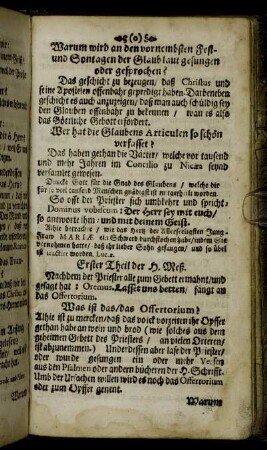 (o)
Warum wird an den vornembsten Fest-
und Sontagen der Glaub laut gesungen
oder gesprochen?
Das geschicht zu bezeugen, daß Christus und
seine Apostelen offenbahr gepredigt haben. Darbeneben
geschicht es auch anzuzeigen, daß man auch schüldig sey
den Glauben offenbahr zu bekennen / wan es also
das Göttliche Gebott erfordert.
Wer hat die Glaubens Articulen so schön
verfasset?
Das haben gethan die Vätter, welche vor tausend
und mehr Jahren im Concilio zu Nicæa seynd
versamlet gewesen.
Dancke Gott für die Gnad des Glaubens / welche dir
für viel tausend Menschen gnädigst ist
So offt der Priester sich umbkehrt und spricht:
Dominus vobiscum: Der Herr sey mit euch/
so antworte ihm: und mit deinem Geist.
Alhie betrachte / wie das Hertz der Allerseeligsten Jung-
Fraw MARIÆ ein Schwerd durchstochen habe/ indem Sie
vernohmen hatte/ daß ihr lieber Sohn gefangen/ und so übel
wäre worden. Luc. 2.
Erster Theil der H. Meß.
Nachdem der Priester alle zum Gebett ermahnt/ und
gesagt hat: Oremus, Lasset uns betten, fangt an
das Offertorium.
Was ist das/ das Offertorium?
Alhie ist zu mercken/ daß das volck vorzeiten ihr Opffer
gethan habe an wein und brod (wie solches aus dem
geheimen Gebett des Priesters/ an vielen Orteren/
ist abzunemmen.) Underdessen aber lase der Priester/
oder wurde gesungen ein oder mehr Versen
aus den Psalmen oder andern bücheren der H. Schrifft.
Umb der Ursachen willen wird es noch das Offertorium
oder zum Opffer genent.
Warum